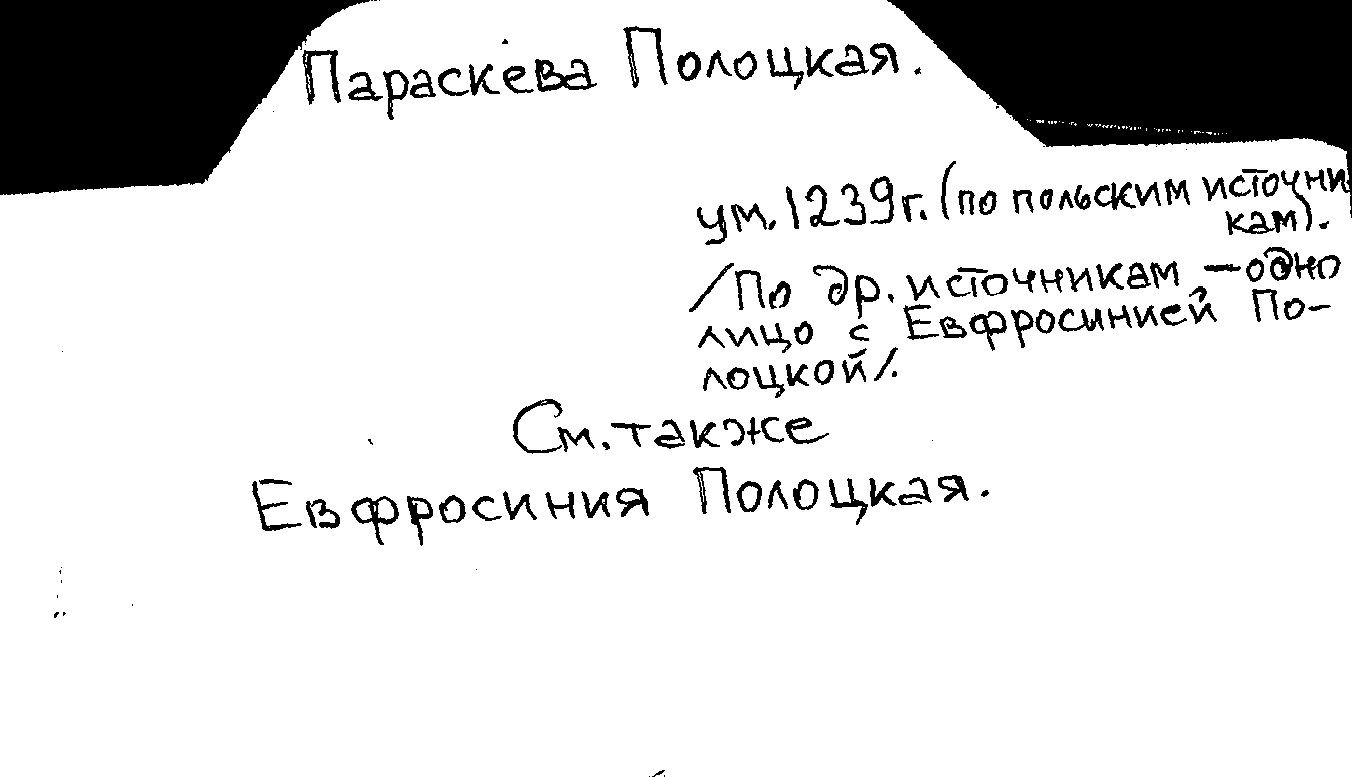 Параскева Полоцкая.
ум. 1239 г. (по польским источни
кам).
/По др. источникам – одно
лицо с Евфросинией По-
лоцкой/.
См. также
Евфросиния Полоцкая.